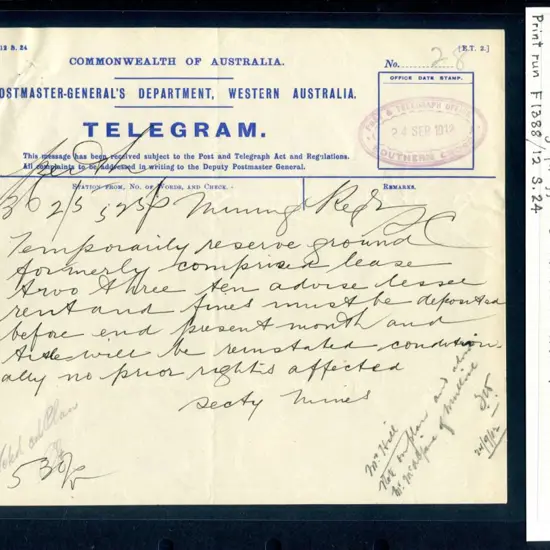 12 S. 24
[E.T. 2.]
COMMONWEALTH OF AUSTRALIA.
No. 28
OSTMASTER-GENERAL'S DEPARTMENT, WESTERN AUSTRALIA.
OFFICE DATE STAMP.
POST & TELEGRAPH OFFICE
24 SEP 1912
SOUTHERN CROSS
TELEGRAM.
This message has been received subject to the Post and Telegraph Act and Regulations.
All complaints to be addressed in writing to the Deputy Postmaster General.
Perth
STATION FROM, NO. OF WORDS, AND CHECK.
REMARKS.
Mining Regr
SC
Temporarily reserve ground
formerly comprised lease
two three ten advise lessee
rent and fines must be deposited
before end present month and
title will be reinstated condition
ally no prior rights affected
Secty Mines
530p
Mr Hill
Note on plan and advise
Mr McAlpine of
24/9/12
Print run F1388/12 S.24